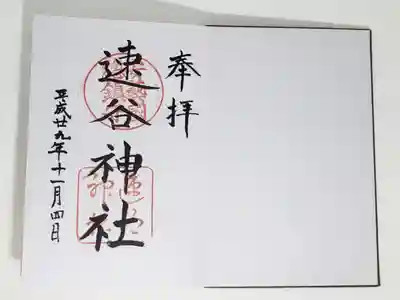 奉拝
速谷神社
平成廿九年十一月四日